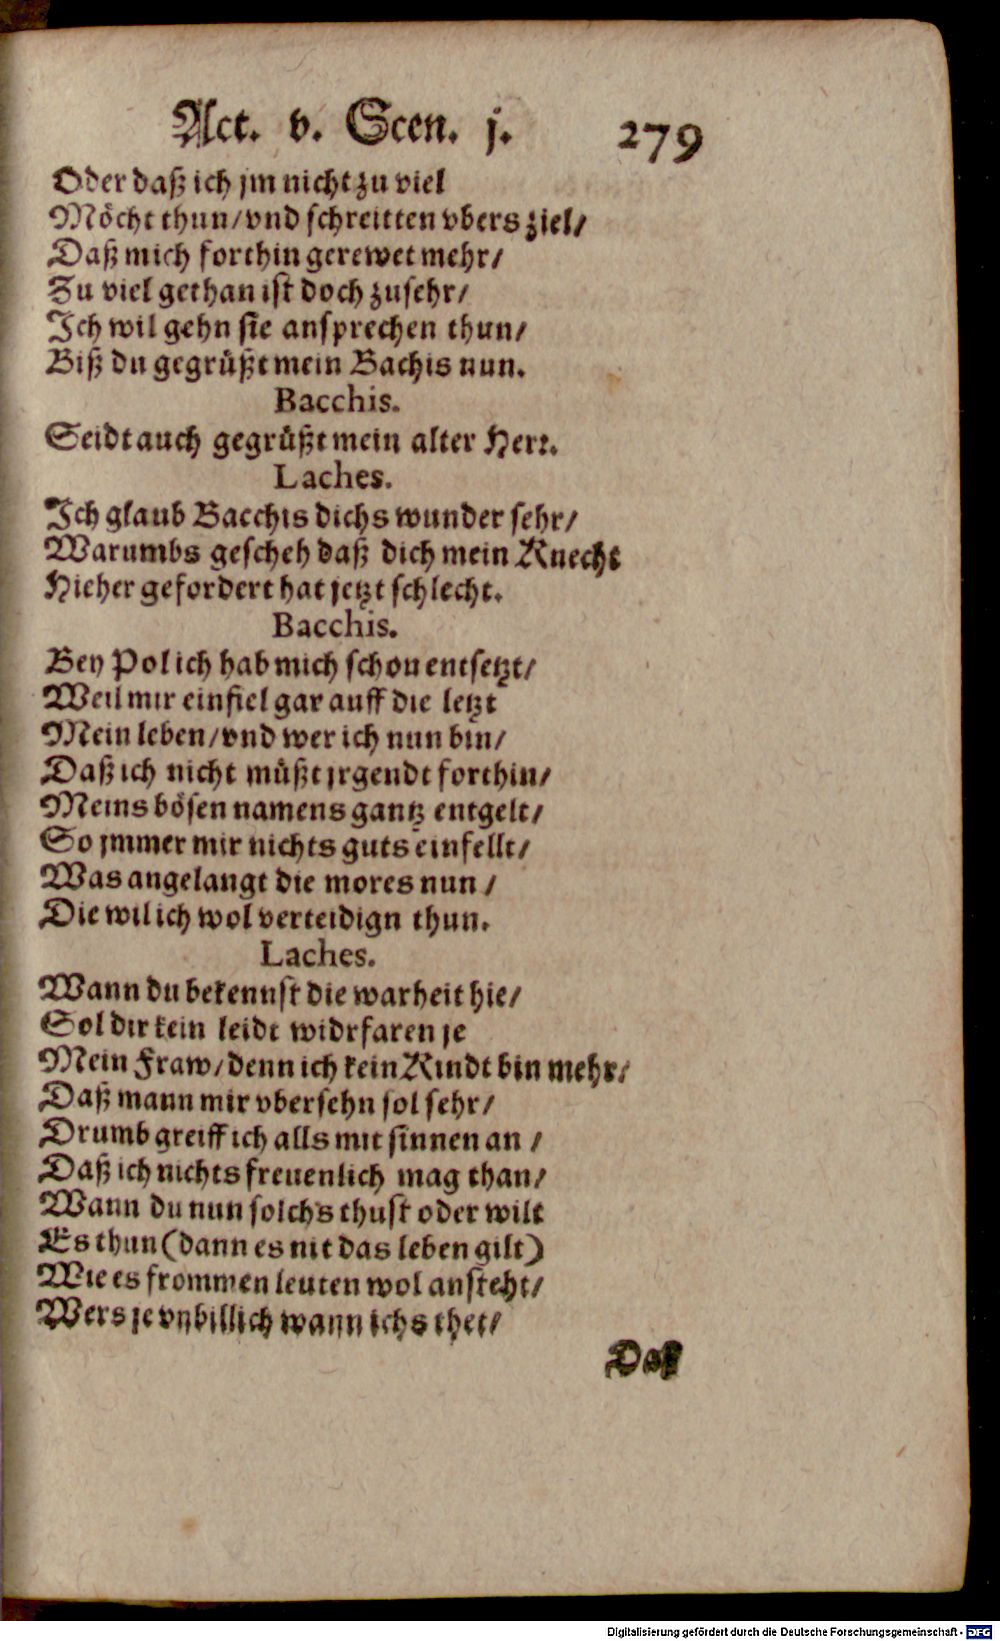 Act. v. Scen. j. 279
Oder daß ich jm nicht zu viel
Möcht thun/ vnd schreitten vbers ziel/
Daß mich forthin gerewet mehr/
Zu viel gethan ist doch zusehr/
Ich wil gehn sie ansprechen thun/
Biß du gegrüßt mein Bachis nun.
Bacchis.
Seidt auch gegrüßt mein alter Herr.
Laches.
Ich glaub Bacchis dichs wunder sehr/
Warumbs gescheh daß dich mein Knecht
Hieher gefordert hat jetzt schlecht.
Bacchis.
Bey Pol ich hab mich schon entsetzt/
Weil mir einfiel gar auff die letzt
Mein leben/ vnd wer ich nun bin/
Daß ich nicht müßt jrgendt forthin/
Meins bösen namens gantz entgelt/
So jmmer mir nichts guts einfellt/
Was angelangt die mores nun /
Die wil ich wol verteidign thun.
Laches.
Wann du bekennst die warheit hie/
Sol dir kein leidt widrfaren je
Mein Fraw/ denn ich kein Kindt bin mehr/
Daß mann mir vbersehn sol sehr/
Drumb greiff ich alls mit sinnen an /
Daß ich nichts freuenlich mag than/
Wann du nun solchs thust oder wilt
Es thun (dann es nit das leben gilt)
Wie es frommen leuten wol ansteht/
Wers je vnbillich wann ichs thet/
Daß
Digitalisierung gefördert durch die Deutsche Forschungsgemeinschaft - DFG